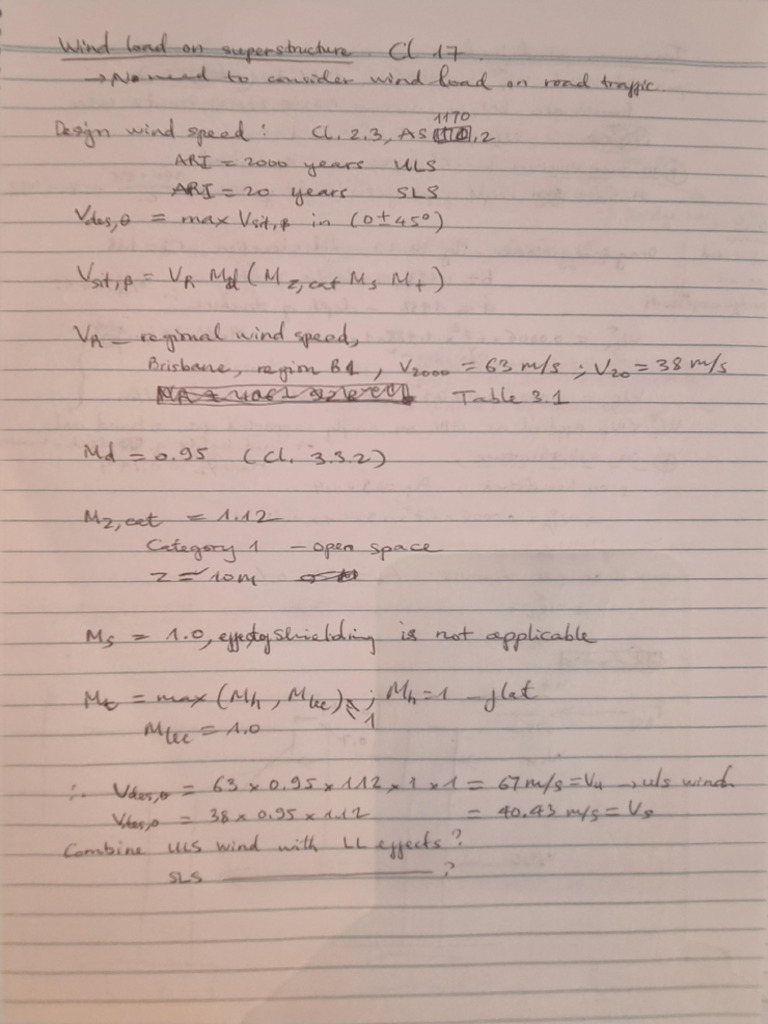 Wind load on superstructure Cl 17.
→ No need to consider wind load on road traffic.
Design wind speed : Cl. 2.3, AS 1170.2
ARI = 2000 years ULS
ARI = 20 years SLS
Vdes,θ = max Vsit,β in (0±45°)
Vsit,β = VR Md (Mz,cat Ms Mt)
VR – regional wind speed,
Brisbane, region B1, V2000 = 63 m/s ; V20 = 38 m/s
Table 3.1
Md = 0.95 (Cl. 3.3.2)
Mz,cat = 1.12
Category 1 – open space
z = 10m
Ms = 1.0, effect of shielding is not applicable
Mt = max (Mh, Mlee) ; Mh = 1 – flat
Mlee = 1.0
∴ Vdes,θ = 63 x 0.95 x 1.12 x 1 x 1 = 67 m/s = Vu → uls wind
Vdes,θ = 38 x 0.95 x 1.12 = 40.43 m/s = Vs
Combine ULS wind with LL effects ?
SLS ——— ?